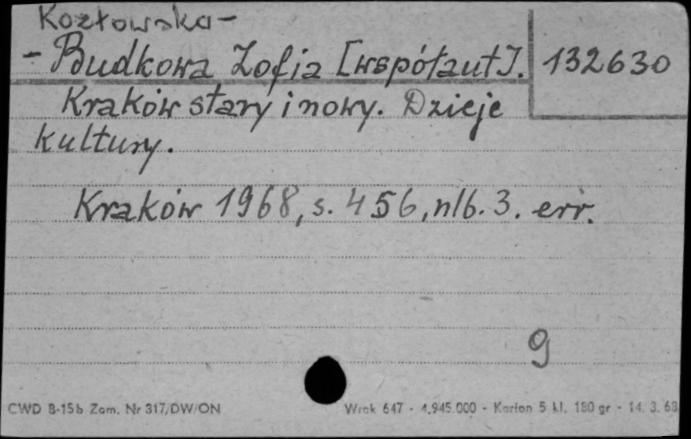 Kozłowska-
- Budkowa Zofia [współaut]. 132630
Kraków stary i nowy. Dzieje
kultury.
Kraków 1968, s. 456, nlb. 3. err.
9
CWD B-15b Zam. Nr 317/DW/ON Wrak 647 - 4.945.000 - Karton 5 kl. 180 gr - 14. 3. 63